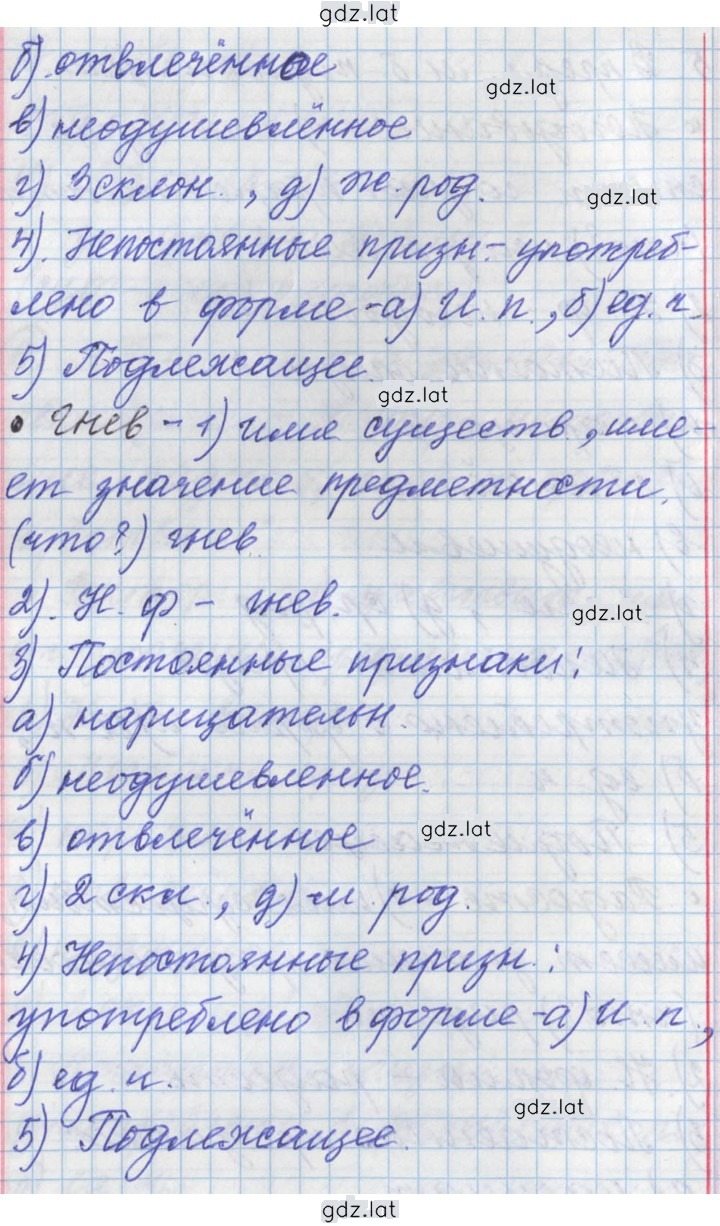 gdz.lat
б). отвлечённое
gdz.lat
в) неодушевлённое
г) 3 склон., д) ж. род.
gdz.lat
4). Непостоянные призн.- употреб-
лено в форме -а) И. п., б) ед. ч.
5) Подлежащее.
gdz.lat
• Гнев - 1) имя существ., име-
ет значение предметности,
(что?) гнев.
2). Н. ф - гнев.
gdz.lat
3) Постоянные признаки:
а) нарицательн.
б) неодушевленное.
в) отвлечённое
gdz.lat
г) 2 скл., д) м. род.
4) Непостоянные призн.:
употреблено в форме -а) И. п.,
б) ед. ч.
gdz.lat
5) Подлежащее.
gdz.lat